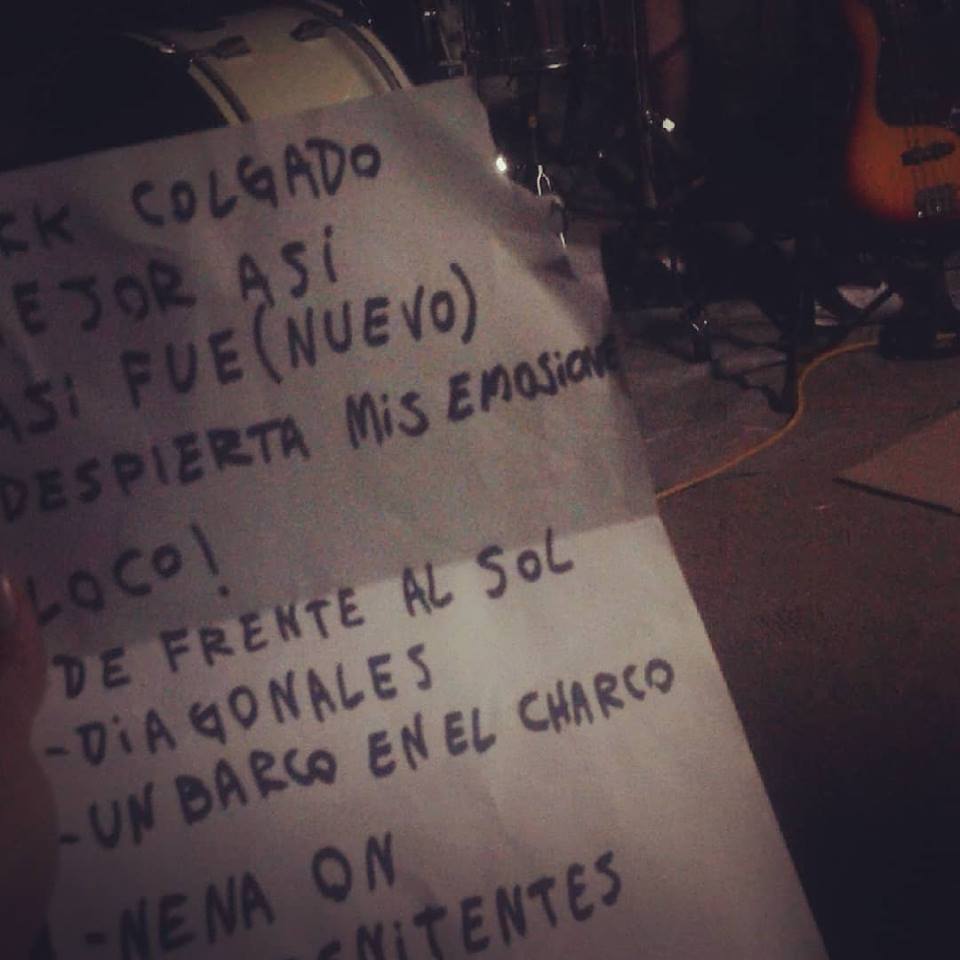 COLGADO
EJOR ASÍ
ASI FUE (NUEVO)
DESPIERTA MIS EMOSIONE
LOCO!
DE FRENTE AL SOL
-DIAGONALES
-UN BARCO EN EL CHARCO
-NENA ON
ENITENTES